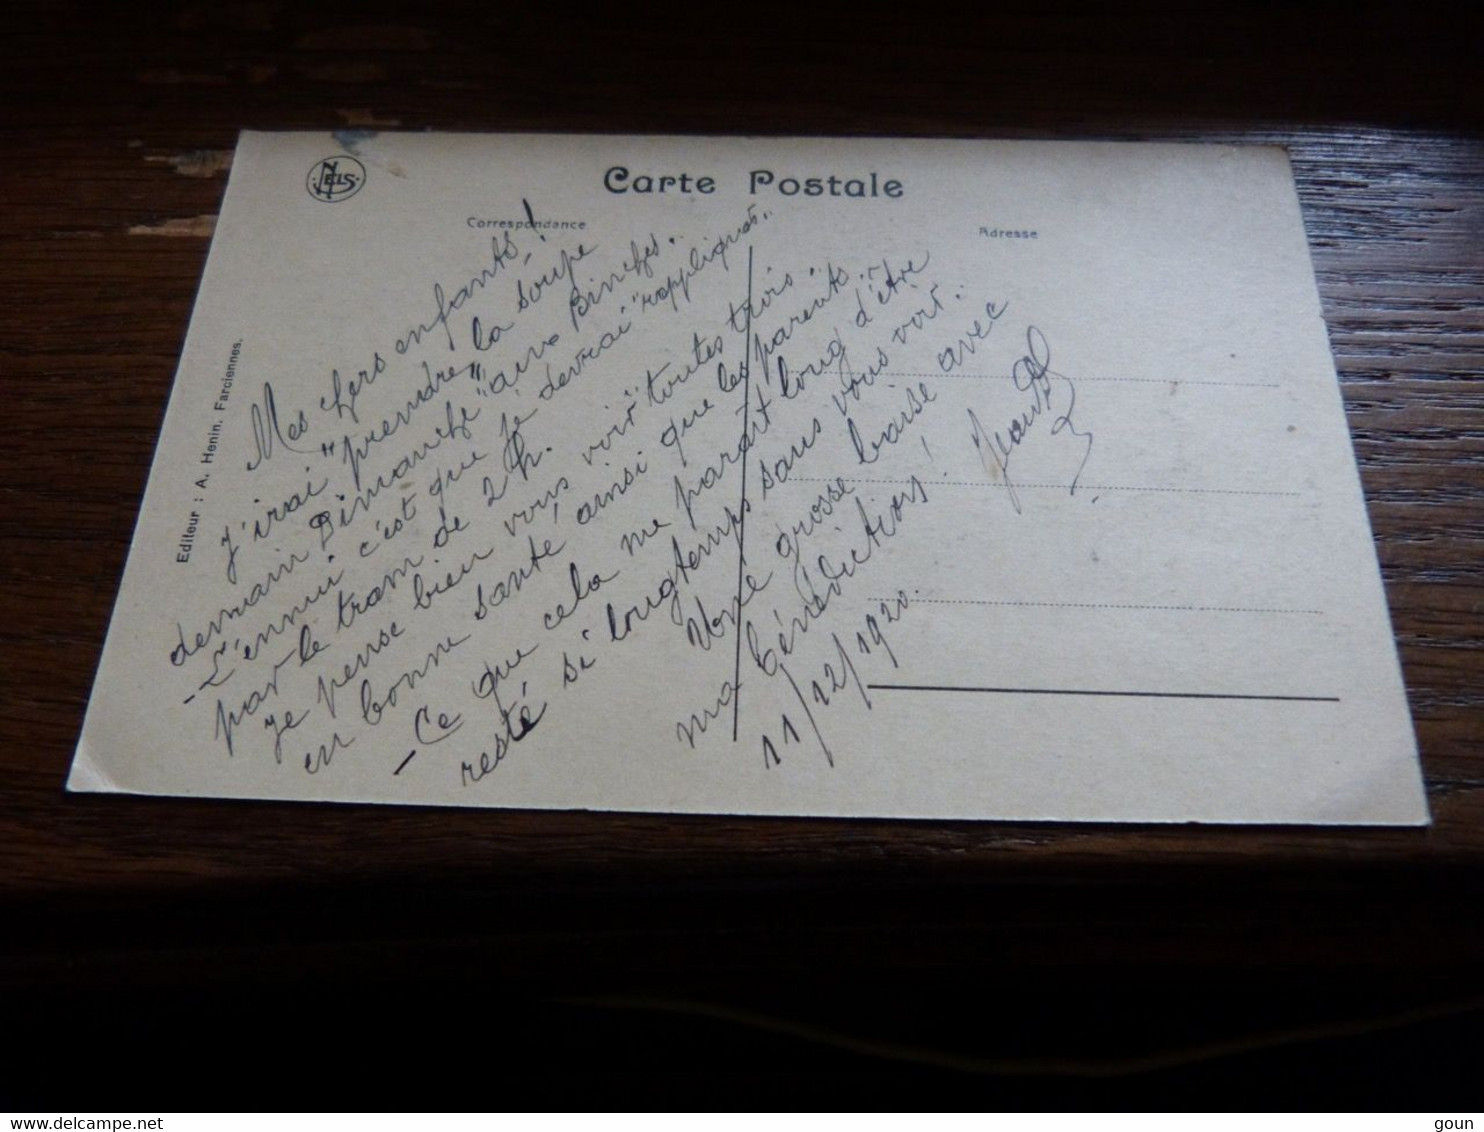 NELS
Carte Postale
Correspondance
Adresse
Editeur : A. Henin. Farciennes.
Mes chers enfants!
j'irai "prendre" la soupe
demain Dimanche "aux Binches.
- L'ennui c'est que je devrai "rappliquer..
par le tram de 2 h.
Je pense bien vous voir "toutes trois
en bonne santé ainsi que les parents..
- Ce que cela me parait long d'être
resté si longtemps sans vous voir..
Une grosse baise avec
ma bénédiction!
11/12/1920.
delcampe.net
goun